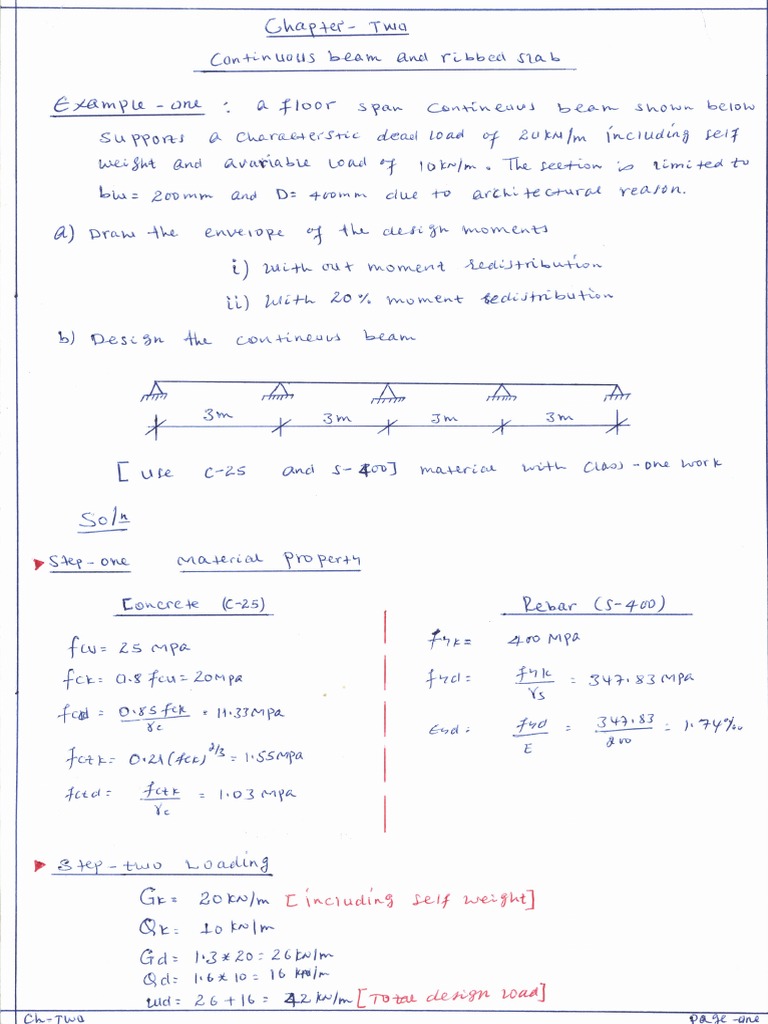 Chapter - Two
Continuous beam and ribbed slab
Example - one : a floor span continuous beam shown below
supports a characterstic dead load of 20kN/m including self
weight and avariable load of 10kN/m. The section is limited to
bw= 200mm and D= 400mm due to architectural reason.
a) Draw the envelope of the design moments
i) with out moment redistribution
ii) With 20% moment redistribution
b) Design the continuous beam
3m 3m 3m 3m
[ use C-25 and S-400] material with class - one work
Soln
Step-one Material Property
Concrete (C-25)
Rebar (S-400)
fcu = 25 MPa
fck = 0.8 fcu = 20MPa
fcd = 0.85 fck / γc = 11.33MPa
fctk = 0.21(fck)^2/3 = 1.55MPa
fctd = fctk / γc = 1.03 MPa
fyk = 400 MPa
fyd = fyk / γs = 347.83 MPa
Eyd = fyd / E = 347.83 / 200 = 1.74‰
Step-two Loading
Gk = 20kN/m [including self weight]
Qk = 10 kN/m
Gd = 1.3*20 = 26kN/m
Qd = 1.6*10 = 16 kN/m
wd = 26+16 = 42kN/m [Total design load]
Ch-Two
page-one